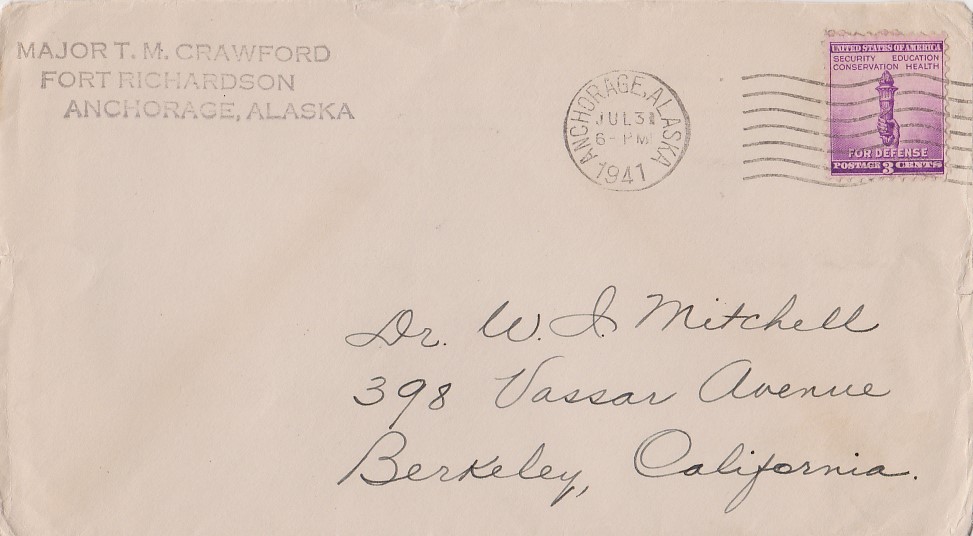 MAJOR T. M. CRAWFORD
FORT RICHARDSON
ANCHORAGE, ALASKA
ANCHORAGE, ALASKA
JUL 31
6 - PM
1941
UNITED STATES OF AMERICA
SECURITY EDUCATION
CONSERVATION HEALTH
FOR DEFENSE
POSTAGE 3 CENTS
Dr. W. J. Mitchell
398 Vassar Avenue
Berkeley, California.